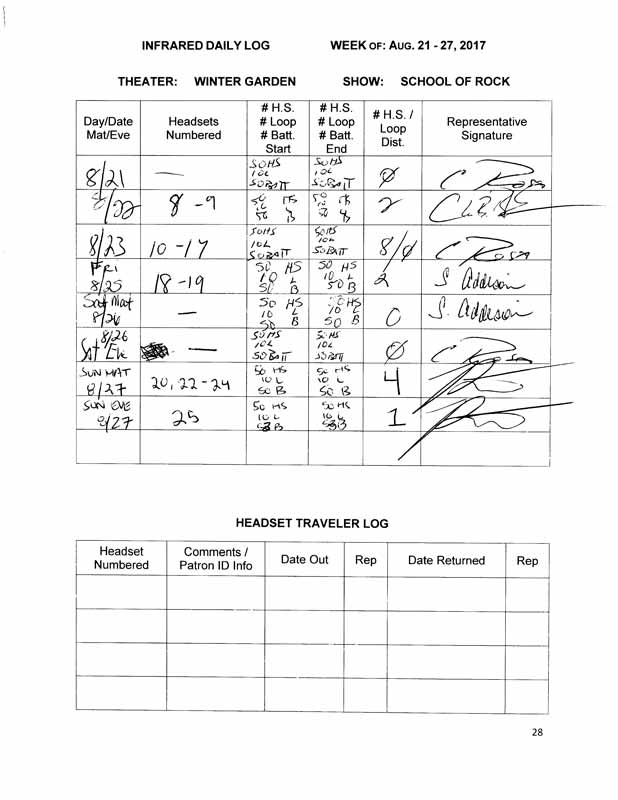 INFRARED DAILY LOG WEEK OF: AUG. 21 - 27, 2017
THEATER: WINTER GARDEN SHOW: SCHOOL OF ROCK
Day/Date Mat/Eve Headsets Numbered # H.S. # Loop # Batt. Start # H.S. # Loop # Batt. End # H.S. / Loop Dist. Representative Signature
8/21 — 50HS 10L 50BATT 50HS 10L 50BATT 0 C Rosa
8/22 8-9 50 HS 50 B 50 HS 2
8/23 10-17 50HS 10L 50BATT 50HS 10L 50BATT 8/0 C Rosa
FRI 8/25 18-19 50 HS 10 L 50 B 50 HS 10 L 50 B 2 S. Addison
Sat Mat 8/26 — 50 HS 10 L 50 B 50HS 10 L 50 B 0 S. Addison
8/26 Sat Eve — 50HS 10L 50BATT 50HS 10L 50BATT 0 C Rosa
SUN MAT 8/27 20, 22-24 50 HS 10 L 50 B 50 HS 10 L 50 B 4
SUN EVE 8/27 25 50 HS 10 L 50 HS 10 L 1
HEADSET TRAVELER LOG
Headset Numbered Comments / Patron ID Info Date Out Rep Date Returned Rep
28